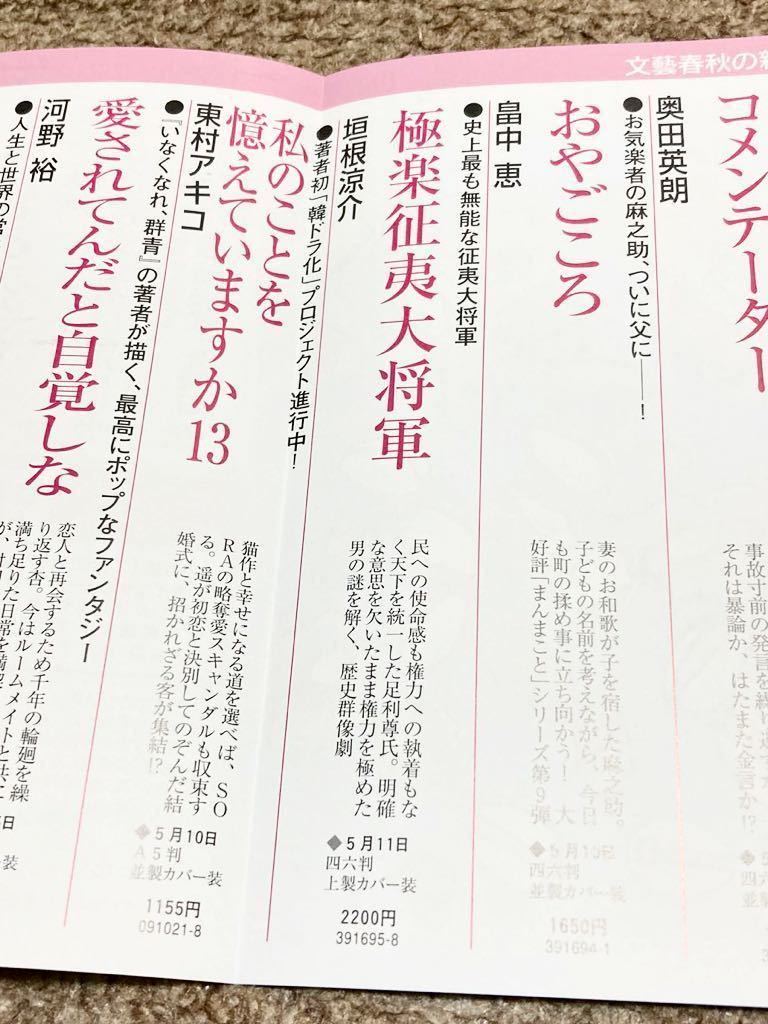 文藝春秋の新
コメンテーター
奥田英朗
事故寸前の発言を繰り返す
それは暴論か、はたまた金言か!?
●お気楽者の麻之助、ついに父に――!
おやごころ
畠中 恵
妻のお和歌が子を宿した麻之助。
子どもの名前を考えながら、今日
も町の揉め事に立ち向かう! 大
好評「まんまこと」シリーズ第9弾
◆5月10日
四六判
並製カバー装
1650円
391694-1
●史上最も無能な征夷大将軍
極楽征夷大将軍
垣根涼介
民への使命感も権力への執着もな
く天下を統一した足利尊氏。明確
な意思を欠いたまま権力を極めた
男の謎を解く、歴史群像劇
◆5月11日
四六判
上製カバー装
2200円
391695-8
●著者初「韓ドラ化」プロジェクト進行中!
私のことを
憶えていますか13
東村アキコ
猫作と幸せになる道を選べば、SO
RAの略奪愛スキャンダルも収束す
る。遥が初恋と決別してのぞんだ結
婚式に、招かれざる客が集結!?
◆5月10日
A5判
並製カバー装
1155円
091021-8
●『いなくなれ、群青』の著者が描く、最高にポップなファンタジー
愛されてんだと自覚しな
河野 裕
恋人と再会するため千年の輪廻を繰
り返す杏。今はルームメイトと共に
満ち足りた日常を満喫
●人生と世界の